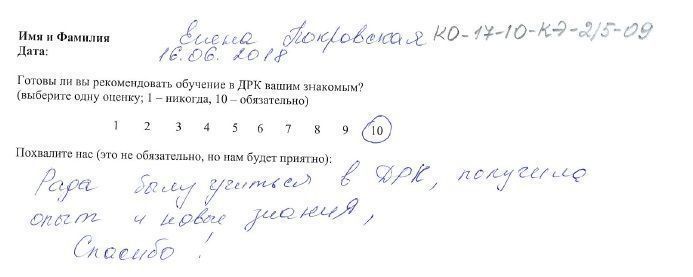 Имя и Фамилия Елена Покровская КО-17-10-КЭ-2/5-09
Дата: 16.06.2018
Готовы ли вы рекомендовать обучение в ДРК вашим знакомым?
(выберите одну оценку; 1 – никогда, 10 – обязательно)
1 2 3 4 5 6 7 8 9 10
Похвалите нас (это не обязательно, но нам будет приятно):
Рада была учиться в ДРК, получила
опыт и новые знания,
Спасибо!